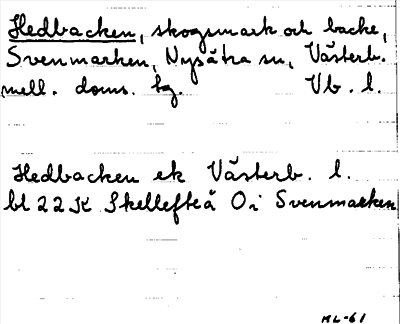 Hedbacken, skogsmark och backe,
Svenmarken, Nysätra sn, Västerb.
mell. doms. tg. Vb. l.
Hedbacken ek Västerb. l.
bl 22 K Skellefteå Oi Svenmarken
ML-61